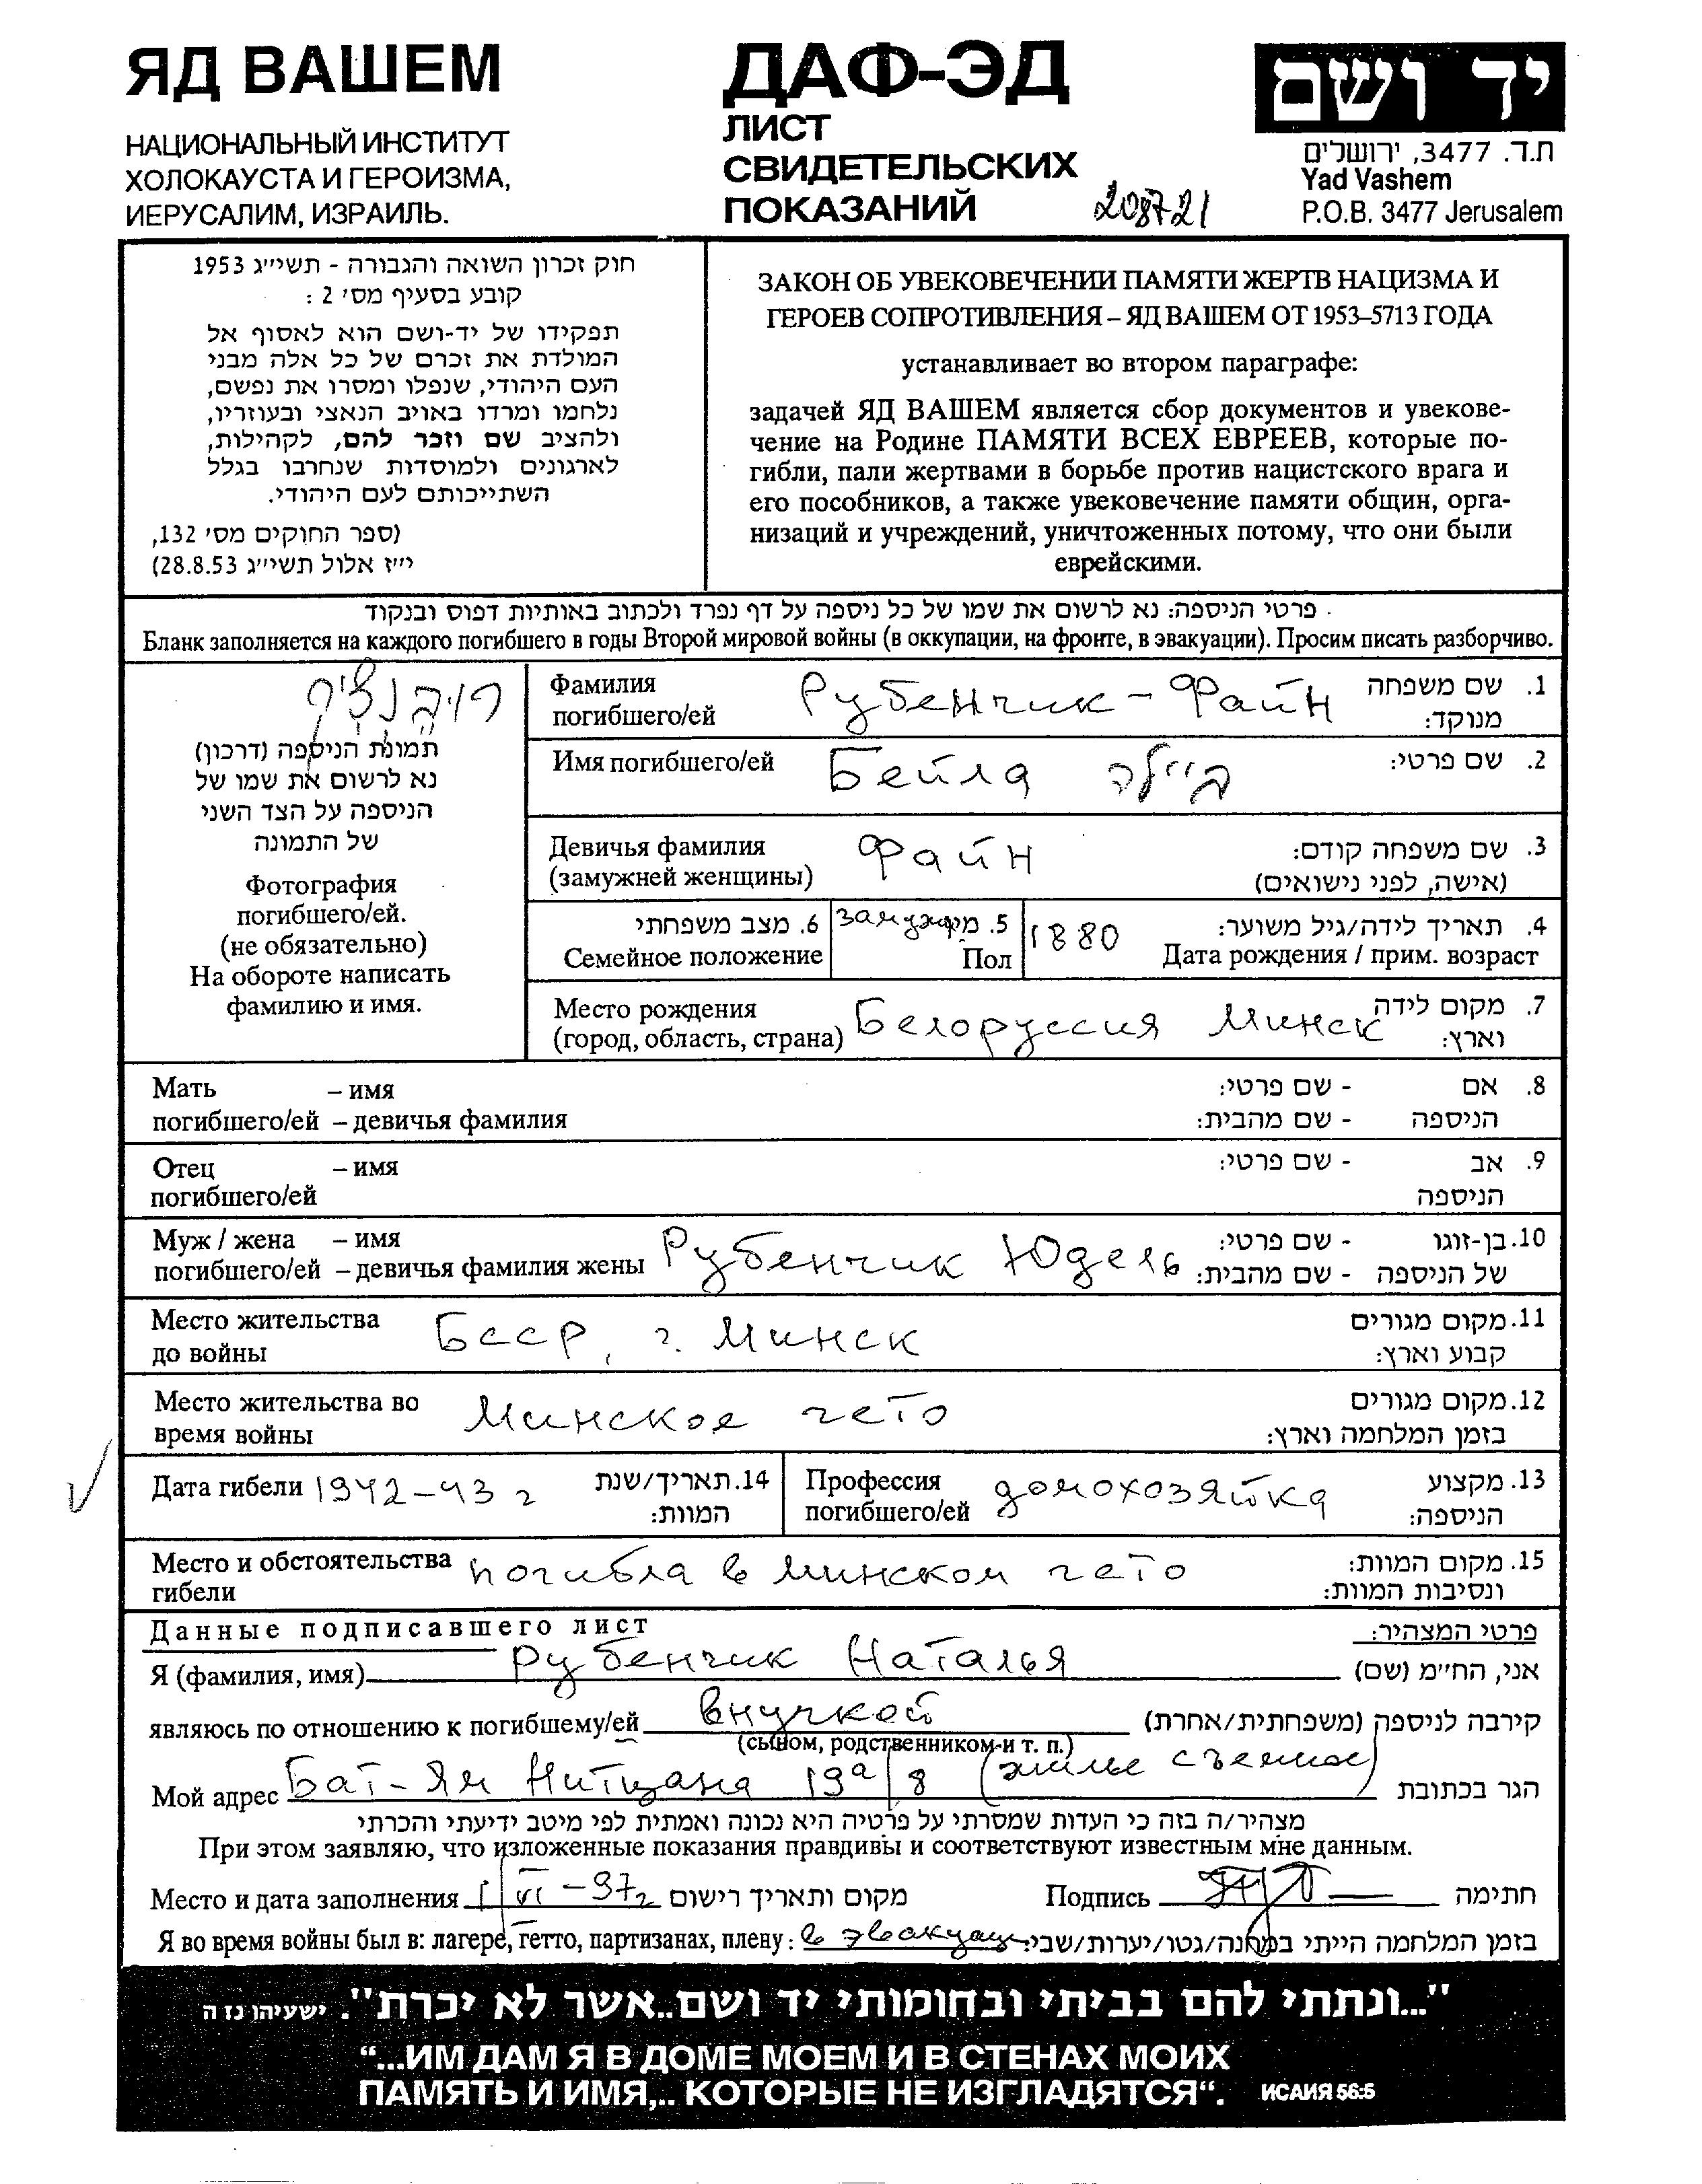 ЯД ВАШЕМ
НАЦИОНАЛЬНЫЙ ИНСТИТУТ
ХОЛОКАУСТА И ГЕРОИЗМА,
ИЕРУСАЛИМ, ИЗРАИЛЬ.
ДАФ-ЭД
ЛИСТ
СВИДЕТЕЛЬСКИХ
ПОКАЗАНИЙ
208721
יד ושם
ת.ד. 3477, ירושלים
Yad Vashem
P.O.B. 3477 Jerusalem
חוק זכרון השואה והגבורה - תשי״ג 1953
קובע בסעיף מס׳ 2 :
תפקידו של יד-ושם הוא לאסוף אל
המולדת את זכרם של כל אלה מבני
העם היהודי, שנפלו ומסרו את נפשם,
נלחמו ומרדו באויב הנאצי ובעוזריו,
ולהציב שם וזכר להם, לקהילות,
לארגונים ולמוסדות שנחרבו בגלל
השתייכותם לעם היהודי.
(ספר החוקים מס׳ 132,
י״ז אלול תשי״ג 28.8.53)
ЗАКОН ОБ УВЕКОВЕЧЕНИИ ПАМЯТИ ЖЕРТВ НАЦИЗМА И
ГЕРОЕВ СОПРОТИВЛЕНИЯ – ЯД ВАШЕМ ОТ 1953–5713 ГОДА
устанавливает во втором параграфе:
задачей ЯД ВАШЕМ является сбор документов и увекове-
чение на Родине ПАМЯТИ ВСЕХ ЕВРЕЕВ, которые по-
гибли, пали жертвами в борьбе против нацистского врага и
его пособников, а также увековечение памяти общин, орга-
низаций и учреждений, уничтоженных потому, что они были
еврейскими.
פרטי הניספה: נא לרשום את שמו של כל ניספה על דף נפרד ולכתוב באותיות דפוס ובנקוד
Бланк заполняется на каждого погибшего в годы Второй мировой войны (в оккупации, на фронте, в эвакуации). Просим писать разборчиво.
רובנציק
תמונת הניספה (דרכון)
נא לרשום את שמו של
הניספה על הצד השני
של התמונה
Фотография
погибшего/ей.
(не обязательно)
На обороте написать
фамилию и имя.
Фамилия Рубенчик - Файн 1. שם משפחה
погибшего/ей מנוקד:
Имя погибшего/ей Бейла ביילה 2. שם פרטי:
Девичья фамилия Файн 3. שם משפחה קודם:
(замужней женщины) (אישה, לפני נישואים)
6. מצב משפחתי замужем 5. מין 1880 4. תאריך לידה/גיל משוער:
Семейное положение Пол Дата рождения / прим. возраст
Место рождения Белоруссия Минск 7. מקום לידה
(город, область, страна) וארץ:
Мать – имя 8. אם - שם פרטי:
погибшего/ей – девичья фамилия הניספה - שם מהבית:
Отец – имя 9. אב - שם פרטי:
погибшего/ей הניספה
Муж / жена – имя Рубенчик Юдель 10. בן-זוגו - שם פרטי:
погибшего/ей – девичья фамилия жены של הניספה - שם מהבית:
Место жительства БССР, г. Минск 11. מקום מגורים
до войны קבוע וארץ:
Место жительства во Минское гето 12. מקום מגורים
время войны בזמן המלחמה וארץ:
Дата гибели 1942-43 г 14. תאריך/שנת
המוות:
Профессия домохозяйка 13. מקצוע
погибшего/ей הניספה:
Место и обстоятельства погибла в минском гето 15. מקום המוות:
гибели ונסיבות המוות:
Данные подписавшего лист פרטי המצהיר:
Я (фамилия, имя) Рубенчик Наталья אני, הח״מ (שם)
являюсь по отношению к погибшему/ей внучкой קירבה לניספה (משפחתית/אחרת)
(сыном, родственником и т. п.)
Мой адрес Бат-Ям Нитцана 19а/8 (жилье съемное) הגר בכתובת
מצהיר/ה בזה כי העדות שמסרתי על פרטיה היא נכונה ואמתית לפי מיטב ידיעתי והכרתי
При этом заявляю, что изложенные показания правдивы и соответствуют известным мне данным.
Место и дата заполнения 1/VI - 97г מקום ותאריך רישום Подпись חתימה
Я во время войны был в: лагере, гетто, партизанах, плену: в эвакуац בזמן המלחמה הייתי במחנה/גטו/יערות/שבי:
"...ונתתי להם בביתי ובחומותי יד ושם..אשר לא יכרת". ישעיהו נז ה
“...ИМ ДАМ Я В ДОМЕ МОЕМ И В СТЕНАХ МОИХ
ПАМЯТЬ И ИМЯ,.. КОТОРЫЕ НЕ ИЗГЛАДЯТСЯ“. ИСАИЯ 56:5